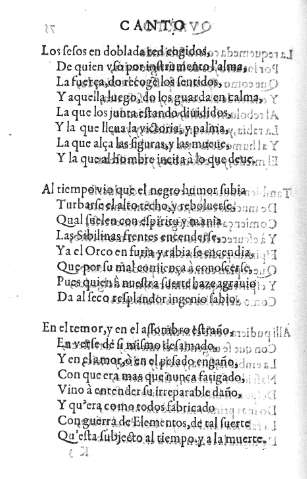 CANTO
Los sesos en doblada red cogidos,
De quien vso por instrumento l'alma,
La fuerça, do recoge los sentidos,
Y aquella luego, do los guarda en calma,
La que los junta estando diuididos,
Y la que lleua la victoria, y palma,
La que alça las figuras, y las mueue,
Y la que al hombre incita à lo que deue.
Al tiempo vio que el negro humor subia
Turbarse el alto techo, y reboluerse,
Qual suelen con espiritu y mania
Las Sibilinas frentes encenderse,
Ya el Orco en furia y rabia se encendia,
Que por su mal comiença à conoscerse,
Pues quien à nuestra suerte haze agrauio
Da al seco resplandor ingenio sabio.
En el temor, y en el assombro estraño,
En verse de si mismo desamado,
Y en el amor, ò en el pesado engaño,
Con que era mas que nunca fatigado,
Vino à entender su irreparable daño,
Y qu'era como todos fabricado
Con guerra de Elementos, de tal suerte
Qu'esta subjecto al tiempo, y a la muerte.